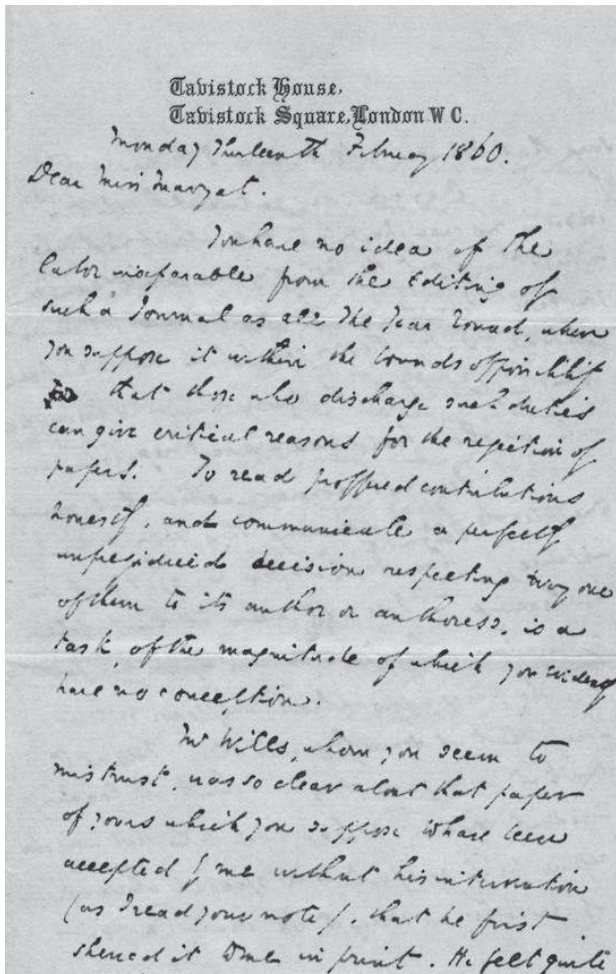 Tavistock House,
Tavistock Square, London W C.
Monday Thirteenth February 1860.
Dear Miss Marryat.
You have no idea of the
labor inseparable from the Editing of
such a Journal as All The Year Round, when
you suppose it within the bounds of possibility
that those who discharge such duties
can give critical reasons for the rejection of
papers. To read proffered contributions
honestly, and communicate a perfectly
unprejudiced decision respecting every one
of them to its author or authoress, is a
task, of the magnitude of which you evidently
have no conception.
Mr Wills, whom you seem to
mistrust, was so clear about that paper
of yours which you suppose to have been
accepted by me without his intervention
(as I read your note), that he first
shewed it to me in print. He felt quite